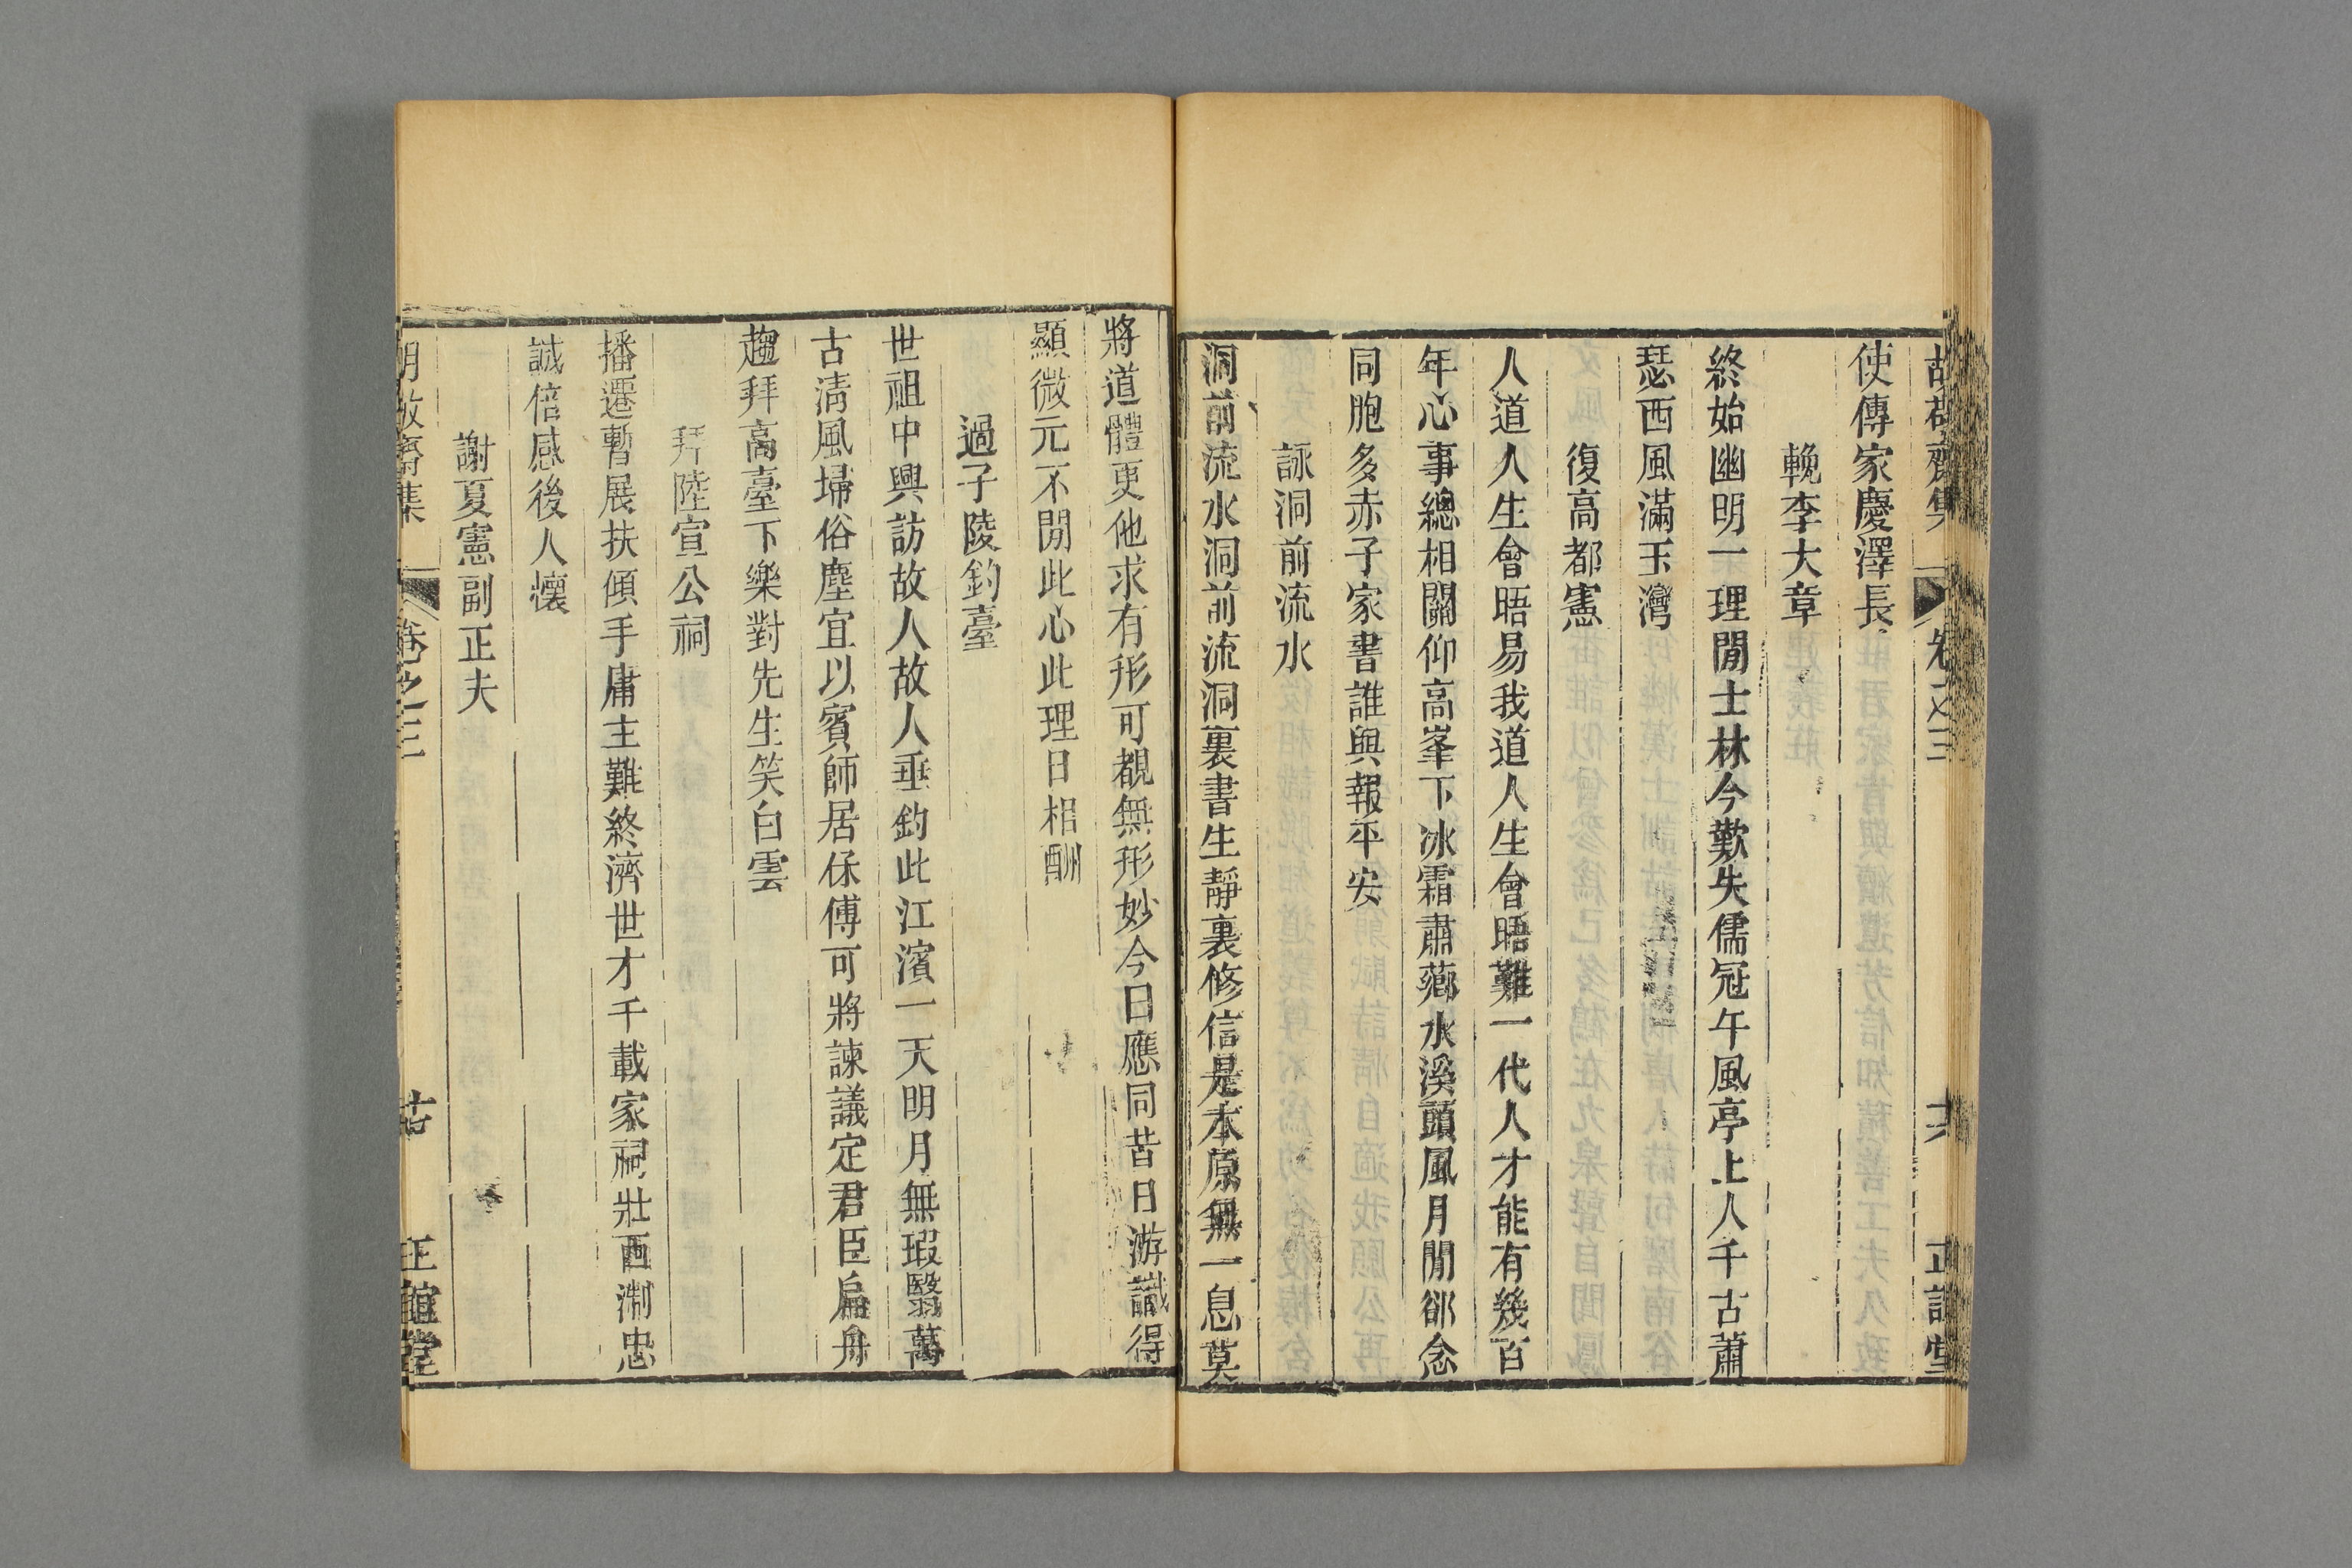 胡敬齋集 卷之三 六 正誼堂
使傳家慶澤長
輓李大章
終始幽明一理閒士林今歎失儒冠午風亭上人千古蕭
瑟西風滿玉灣
復高都憲
人道人生會晤易我道人生會晤難一代人才能有幾百
年心事總相關仰高峯下冰霜肅薌水溪頭風月閒郤念
同胞多赤子家書誰與報平安
詠洞前流水
洞前流水洞前流洞裏書生靜裏修信是本原無一息莫
將道體更他求有形可覩無形妙今日應同昔日游識得
顯微元不閒此心此理日相酬
過子陵釣臺
世祖中興訪故人故人垂釣此江濱一天明月無瑕翳萬
古清風埽俗塵宜以賓師居保傅可將諫議定君臣扁舟
趨拜高臺下樂對先生笑白雲
拜陸宣公祠
播遷暫展扶傾手庸主難終濟世才千載家祠壯西淛忠
誠倍感後人懷
謝夏憲副正夫
胡敬齋集 卷之三 廿 正誼堂